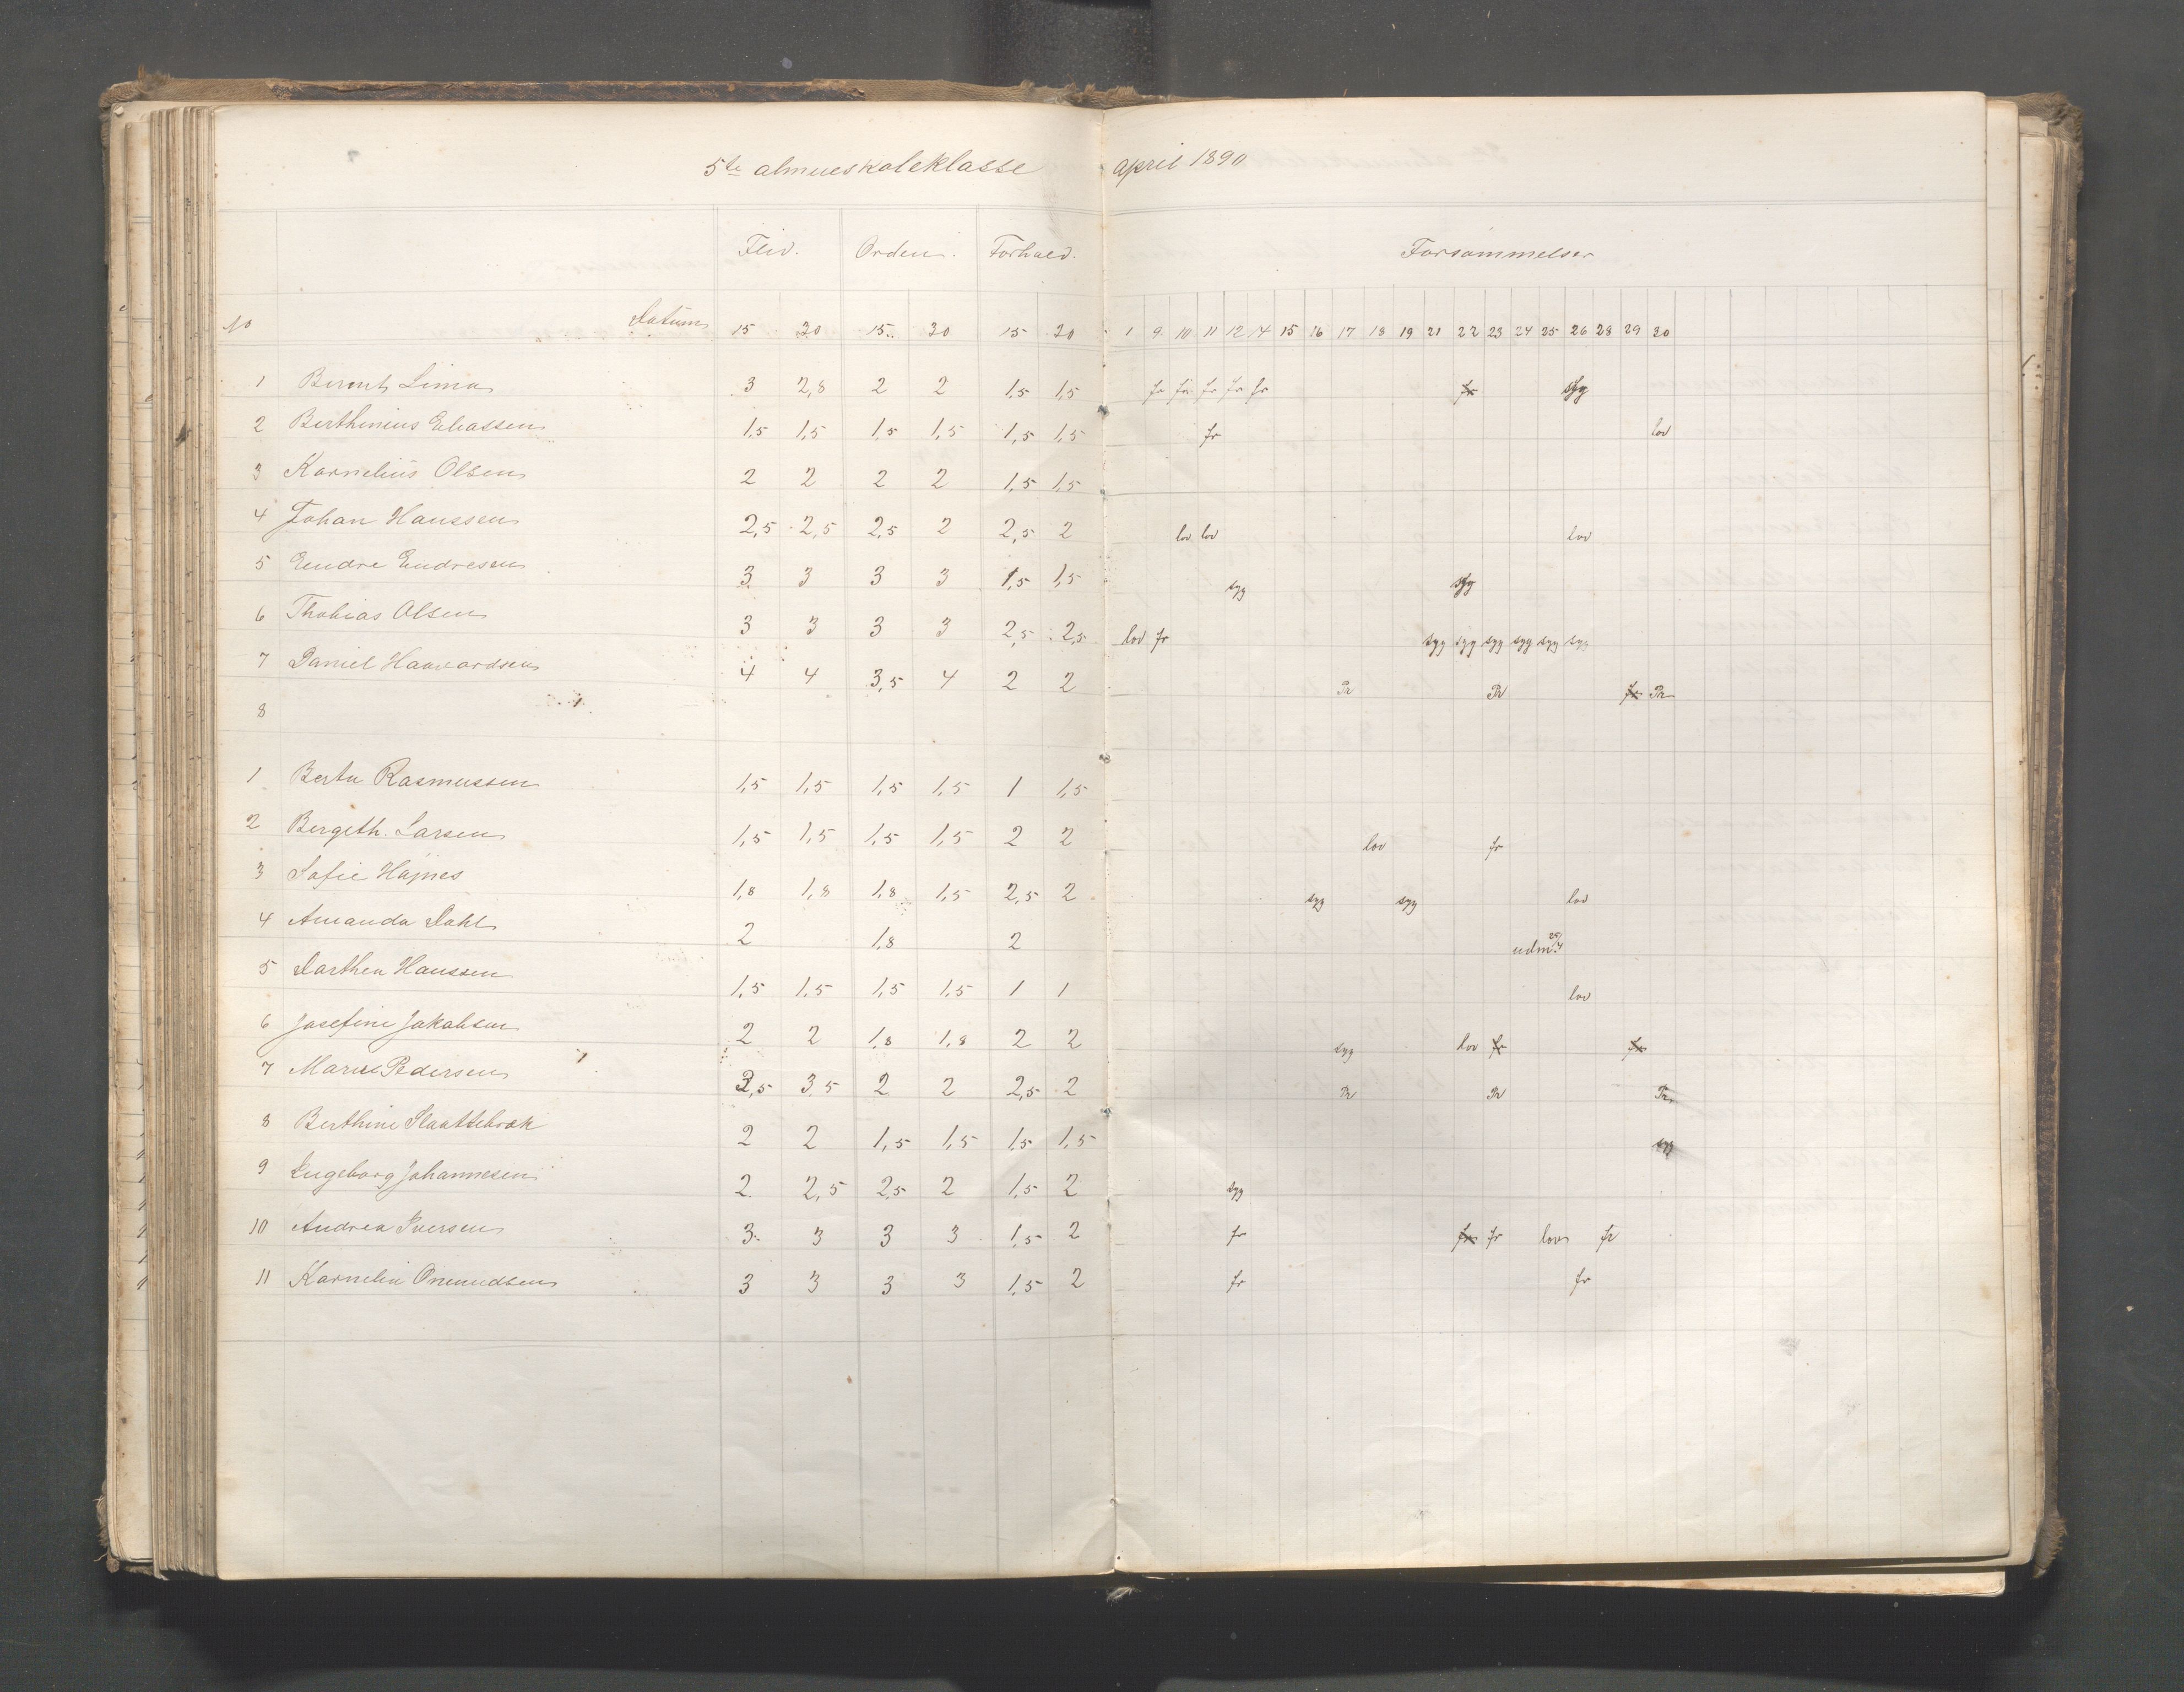 5te almueskoleklasse april 1890
Flid. Orden. Forhold. Forsømmelser
No Datum 15 30 15 30 15 30 1 9 10 11 12 14 15 16 17 18 19 21 22 23 24 25 26 28 29 30
1 Bernt Lima 3 2,8 2 2 1,5 1,5 fr fr fr fr fr fr syg
2 Berthinius Eliassen 1,5 1,5 1,5 1,5 1,5 1,5 fr lov
3 Kornelius Olsen 2 2 2 2 1,5 1,5
4 Johan Hanssen 2,5 2,5 2,5 2 2,5 2 lov lov lov
5 Endre Endresen 3 3 3 3 1,5 1,5 syg syg
6 Thobias Olsen 3 3 3 3 2,5 2,5 lov fr syg syg syg syg syg syg
7 Daniel Haavardsen 4 4 3,5 4 2 2 Pr Pr fr Pr
8
1 Berta Rasmussen 1,5 1,5 1,5 1,5 1 1,5
2 Bergith. Larsen 1,5 1,5 1,5 1,5 2 2 lov fr
3 Sofie Højnes 1,8 1,8 1,8 1,5 2,5 2 syg syg lov
4 Amanda Dahl 2 1,8 2 udm.
5 Dorthea Hanssen 1,5 1,5 1,5 1,5 1 1 lov
6 Josefine Jakobsen 2 2 1,8 1,8 2 2 syg lov fr fr
7 Marie Pedersen 3,5 3,5 2 2 2,5 2 Pr Pr Pr
8 Berthine Slaattebræk 2 2 1,5 1,5 1,5 1,5 syg
9 Ingeborg Johannesen 2 2,5 2,5 2 1,5 2 syg
10 Andrea Iversen 3 3 3 3 1,5 2 fr fr fr lov fr
11 Kornelia Omundsen 3 3 3 3 1,5 2 fr fr